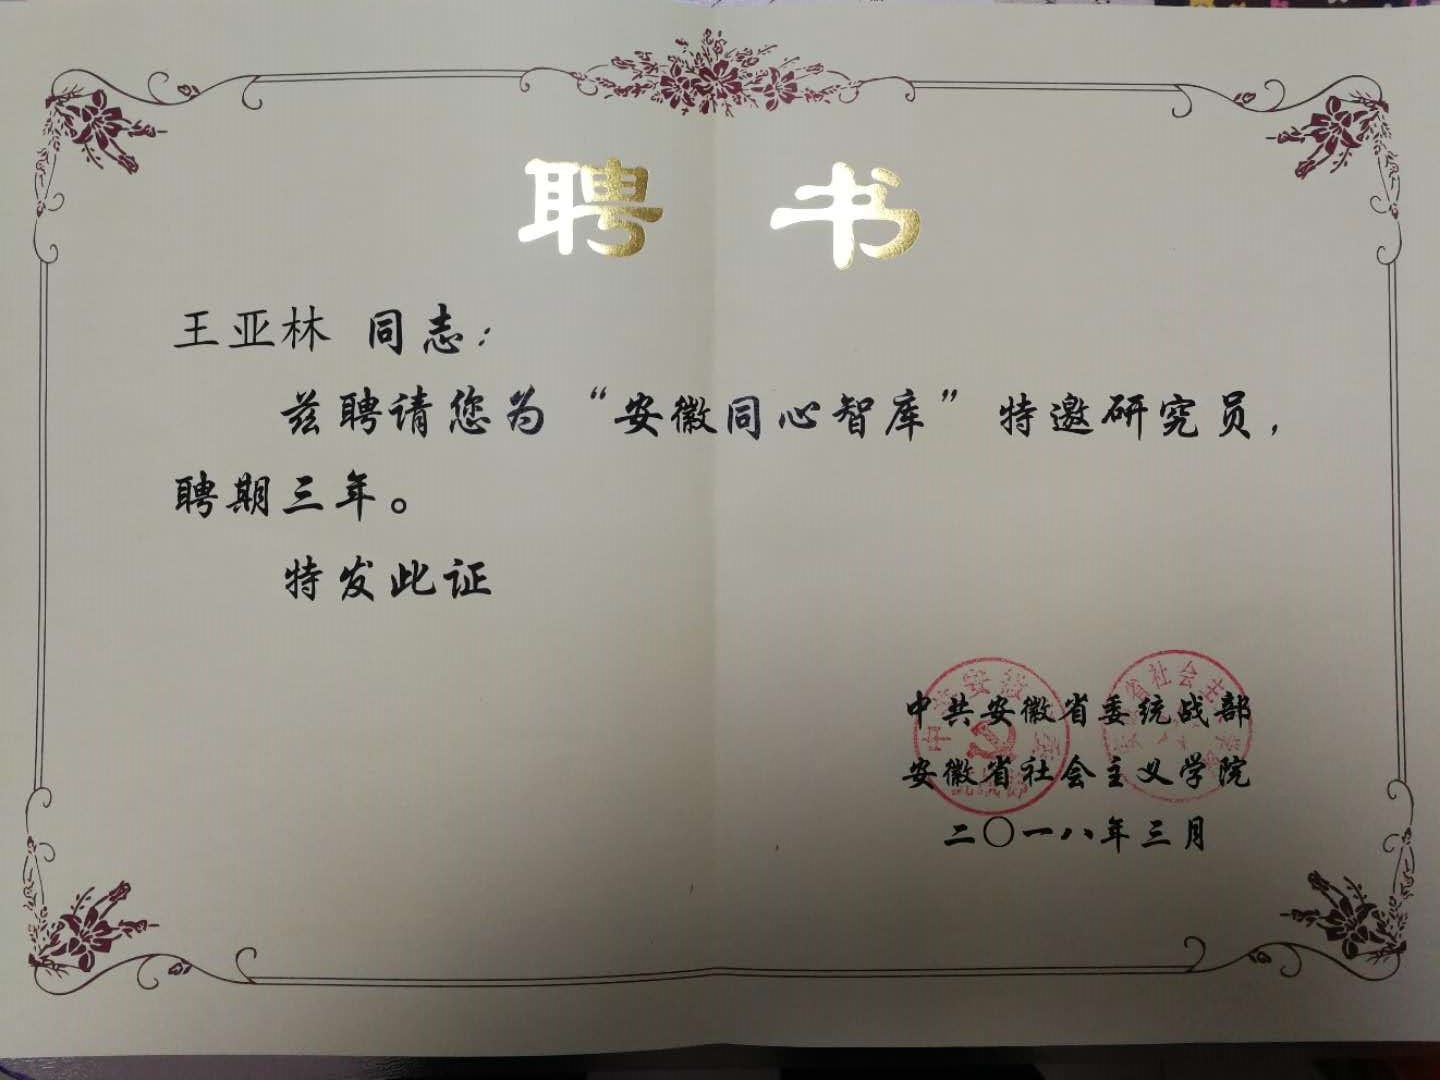 聘书
王亚林 同志：
兹聘请您为“安徽同心智库”特邀研究员，
聘期三年。
特发此证
中共安徽省委统战部
安徽省社会主义学院
二〇一八年三月